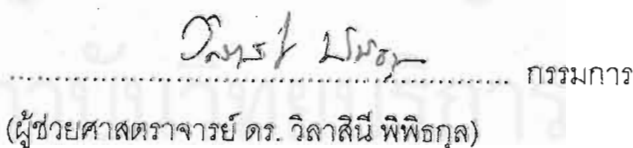 กรรมการ
(ผู้ช่วยศาสตราจารย์ ดร. วิลาสินี พิพิธกุล)